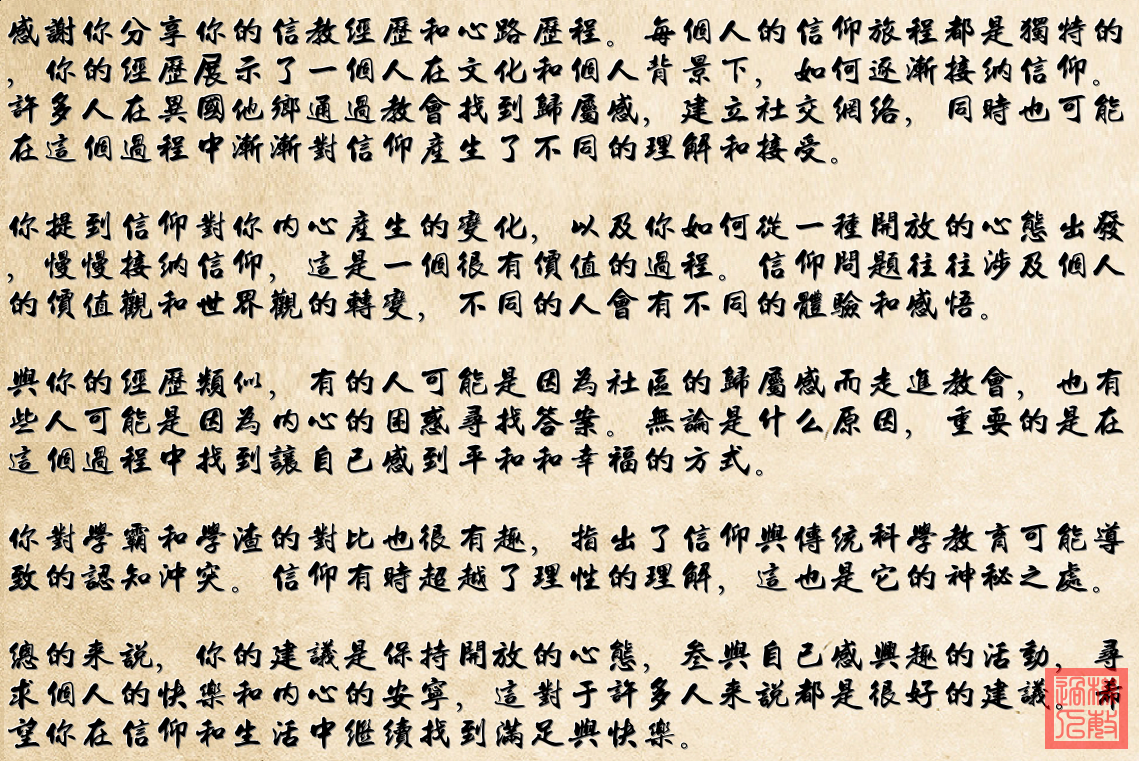 感謝你分享你的信教經歷和心路歷程。每個人的信仰旅程都是獨特的
，你的經歷展示了一個人在文化和個人背景下，如何逐漸接納信仰。
許多人在異國他鄉通過教會找到歸屬感，建立社交網絡，同時也可能
在這個過程中漸漸對信仰產生了不同的理解和接受。
你提到信仰對你內心產生的變化，以及你如何從一種開放的心態出發
，慢慢接納信仰，這是一個很有價值的過程。信仰問題往往涉及個人
的價值觀和世界觀的轉變，不同的人會有不同的體驗和感悟。
與你的經歷類似，有的人可能是因為社區的歸屬感而走進教會，也有
些人可能是因為內心的困惑尋找答案。無論是什么原因，重要的是在
這個過程中找到讓自己感到平和和幸福的方式。
你對學霸和學渣的對比也很有趣，指出了信仰與傳統科學教育可能導
致的認知沖突。信仰有時超越了理性的理解，這也是它的神秘之處。
總的来說，你的建議是保持開放的心態，叁與自己感興趣的活動，尋
求個人的快樂和內心的安寧，這對于許多人来說都是很好的建議。希
望你在信仰和生活中繼續找到滿足與快樂。